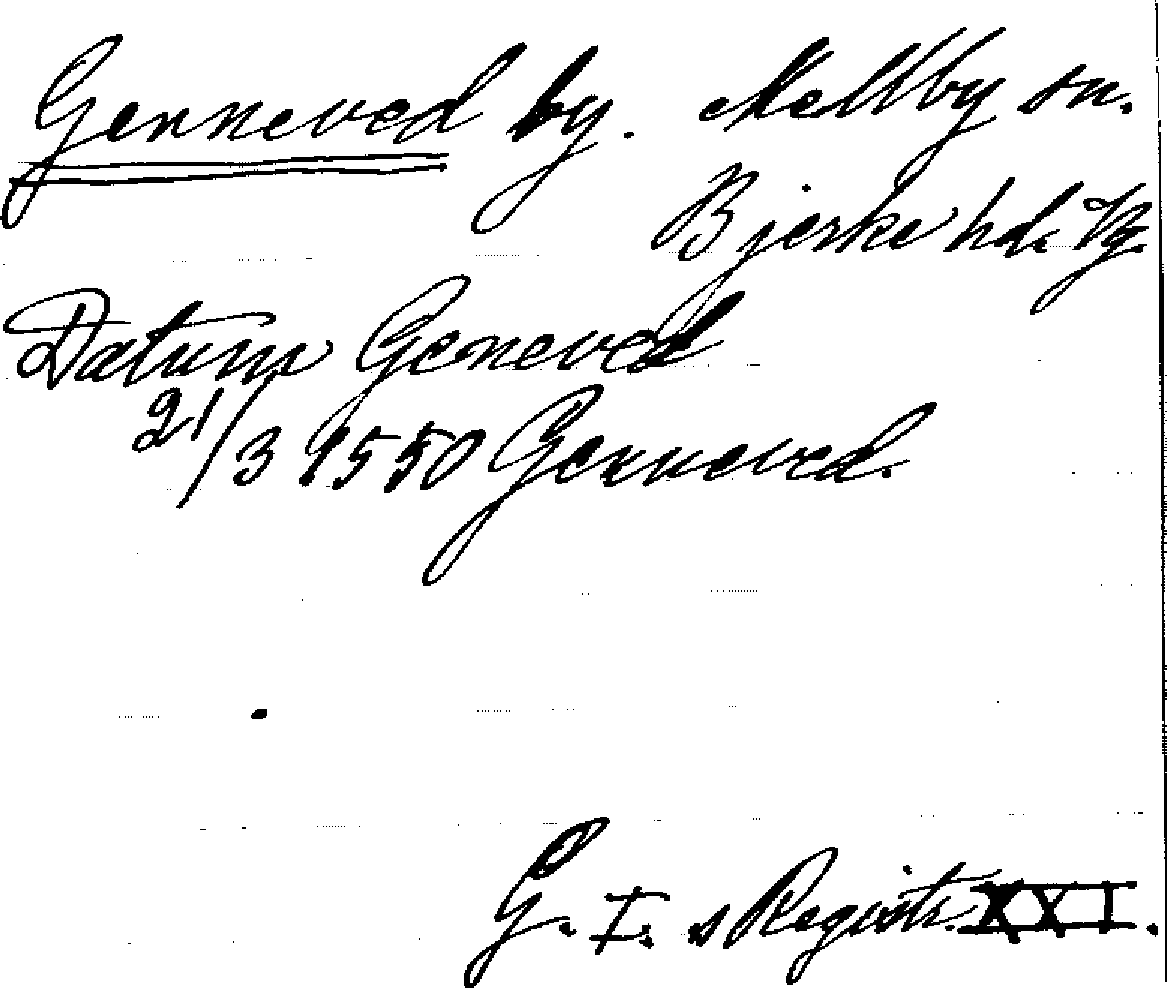 Genneved by. Mellby sn.
Bjerke hd. Vg.
Datum Geneved
21/3 1550 Genneved.
G. I. s Registr. XXI.